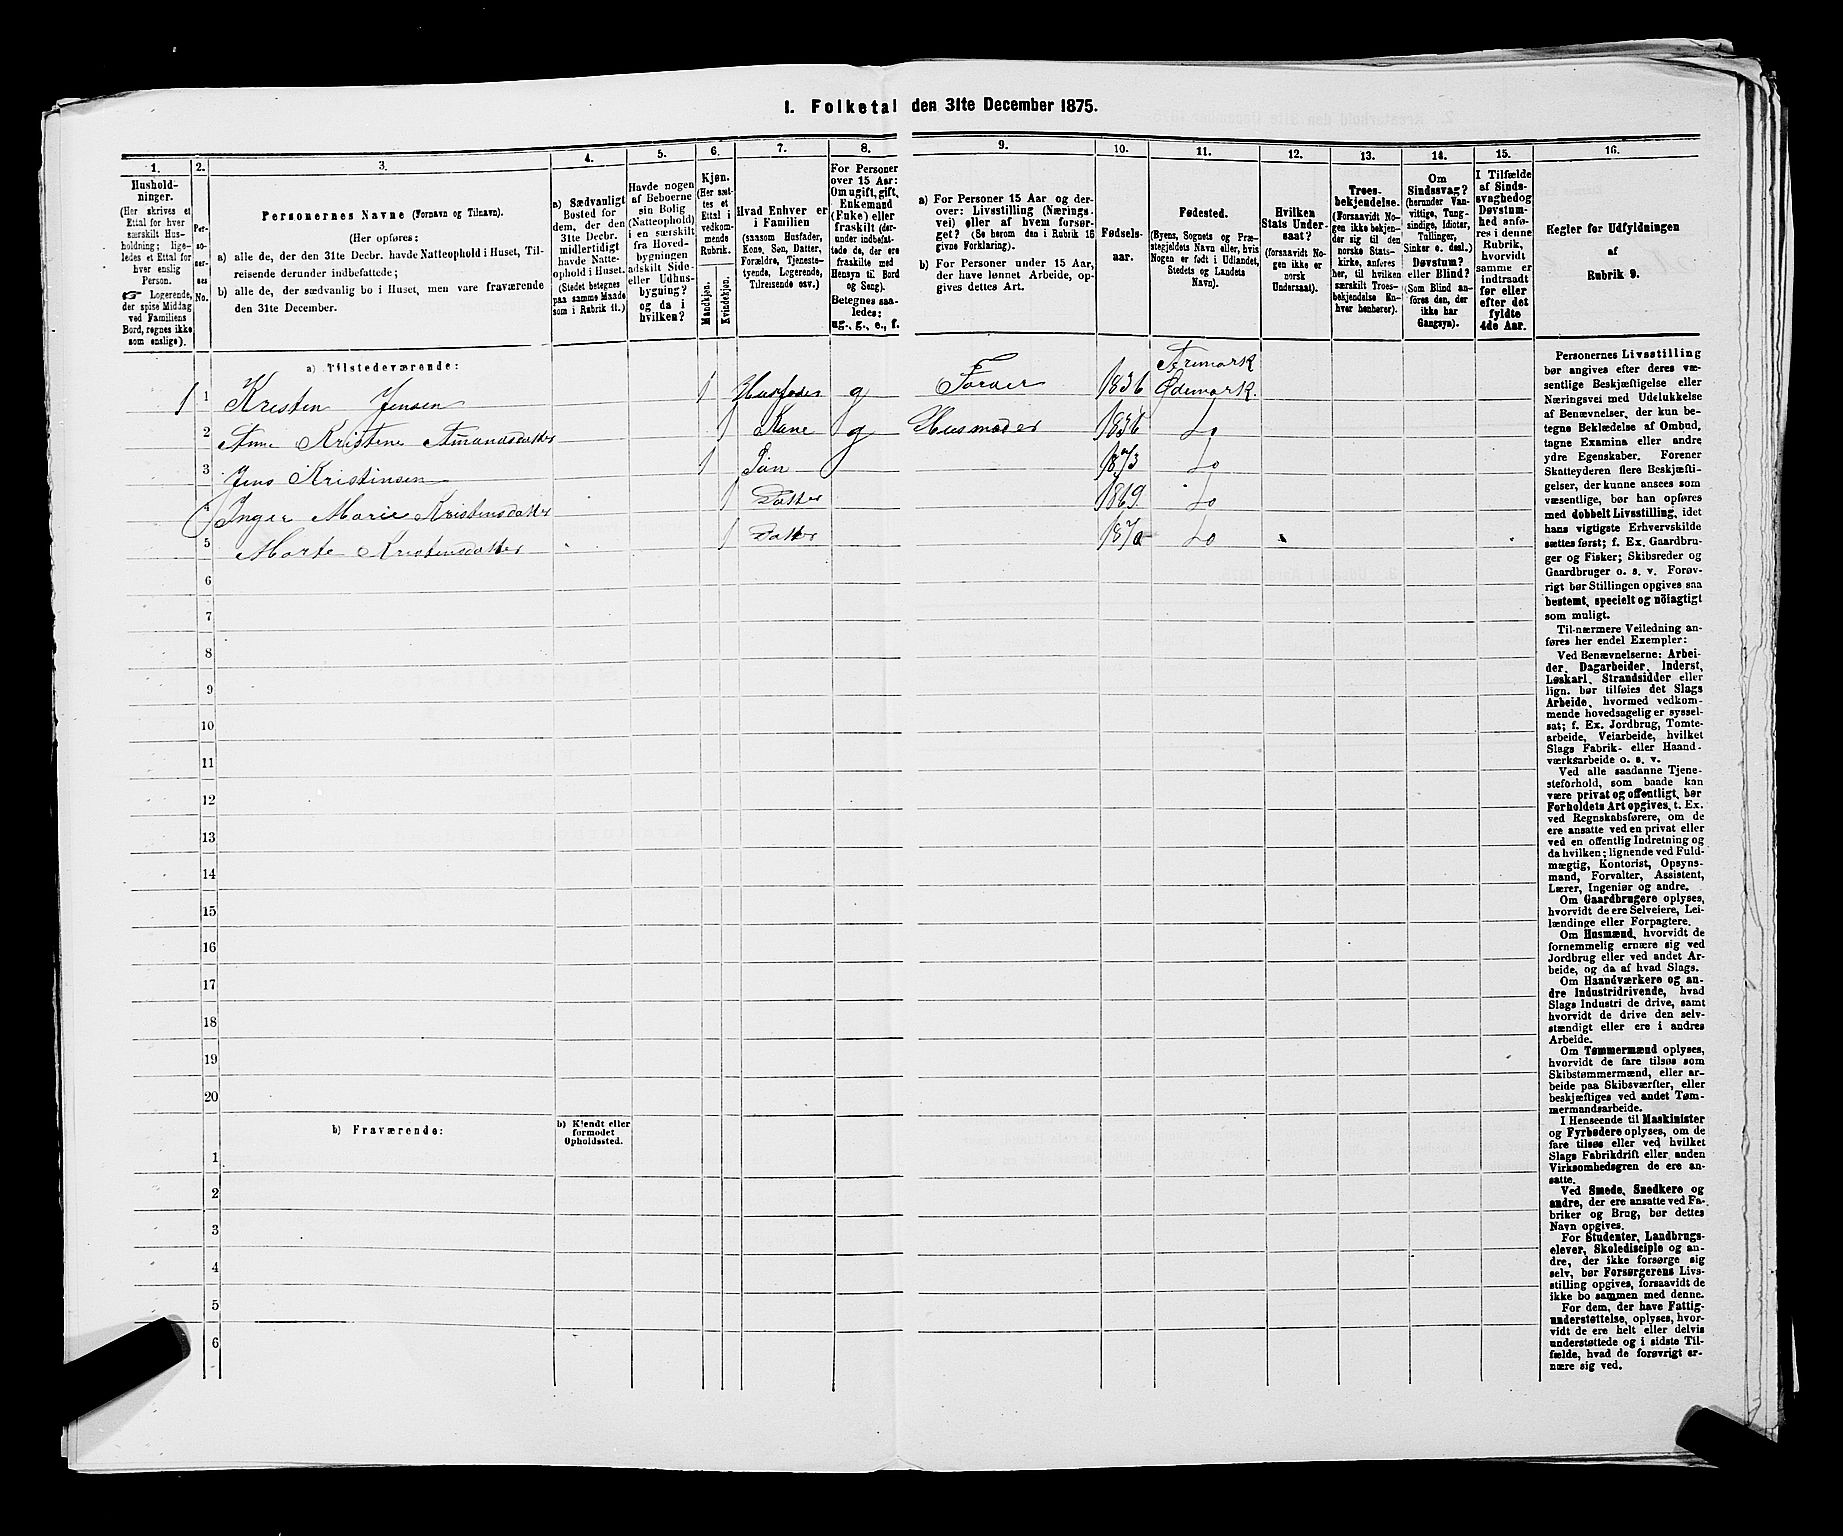 1. Folketal den 31te December 1875.
1.
Hushold-
ninger.
(Her skrives et
Ettal for hver
særskilt Hus-
holdning; lige-
ledes et Ettal for
hver enslig
Person.
☞ Logerende,
der spise Middag
ved Familiens
Bord, regnes ikke
som enslige).
2.
Per-
so-
ner-
nes
No.
3.
Personernes Navne (Fornavn og Tilnavn).
(Her opføres:
a) alle de, der den 31te Decbr. havde Natteophold i Huset, Til-
reisende derunder indbefattede;
b) alle de, der sædvanlig bo i Huset, men vare fraværende
den 31te December.
4.
a) Sædvanligt
Bosted for
dem, der den
31te Decbr.
midlertidigt
havde Natte-
ophold i Huset.
(Stedet betegnes
paa samme Maade
som i Rubrik 11.)
5.
Havde nogen
af Beboerne
sin Bolig
(Natteophold)
i en særskilt
fra Hoved-
bygningen
adskilt Side-
eller Udhus-
bygning?
og da i
hvilken?
6.
Kjøn.
(Her sæt-
tes et
Ettal i
vedkom-
mende
Rubrik.
Mandkjøn.
Kvindekjøn.
7.
Hvad Enhver er
i Familien
(saasom Husfader,
Kone, Søn, Datter,
Forældre, Tjeneste-
tyende, Logerende,
Tilreisende osv.)
8.
For Personer
over 15 Aar:
Om ugift, gift,
Enkemand
(Enke) eller
fraskilt (der-
under indbefat-
tede de, der ere
fraskilte med
Hensyn til Bord
og Seng).
Betegnes saa-
ledes:
ug., g., e., f.
9.
a) For Personer 15 Aar og der-
over: Livsstilling (Nærings-
vei) eller af hvem forsør-
get? (Se herom den i Rubrik 16
givne Forklaring).
b) For Personer under 15 Aar,
der have lønnet Arbeide, op-
gives dettes Art.
10.
Fødsels-
aar.
11.
Fødested.
(Byens, Sognets og Præ-
stegjeldets Navn eller, hvis
Nogen er født i Udlandet,
Stedets og Landets
Navn).
12.
Hvilken
Stats Under-
saat?
(forsaavidt No-
gen ikke er
norsk
Undersaat).
13.
Troes-
bekjendelse.
(Forsaavidt No-
gen ikke bekjen-
der sig til den
norske Stats-
kirke, anføres
her, til hvilken
særskilt Troes-
bekjendelse En-
hver henhører).
14.
Om
Sindssvag?
(herunder Van-
vittige, Tung-
sindige, Idioter,
Tullinger,
Sinker o. desl.)
Døvstum?
eller Blind?
(Som Blind an-
føres den, der
ikke har
Gangsyn).
15.
I Tilfælde
af Sinds-
svaghed og
Døvstum-
hed anfø-
res i denne
Rubrik,
hvorvidt
samme er
indtraadt
før eller
efter det
fyldte
4de Aar.
16.
Regler for Udfyldningen
af
Rubrik 9.
a) Tilstedeværende:
1 1 Kristen Jensen 1 Husfader g 1836 Aremark Ødemark.
2 Anne Kristine Amandsdatter 1 Kone g Husmoder 1836 Do
3 Jens Kristinsen 1 Søn 1873 Do
4 Inger Marie Kristensdatter 1 Datter 1869. Do
5 Marte Kristensdatter 1 Datter Do
6
7
8
9
10
11
12
13
14
15
16
17
18
19
20
b) Fraværende:
b) Kjendt eller
formodet
Opholdssted.
1
2
3
4
5
6
Personernes Livsstilling
bør angives efter deres væ-
sentlige Beskjæftigelse eller
Næringsvei med Udelukkelse
af Benævnelser, der kun be-
tegne Beklædelse af Ombud,
tagne Examina eller andre
ydre Egenskaber. Forener
Skatteyderen flere Beskjæfti-
gelser, der kunne ansees som
væsentlige, bør han opføres
med dobbelt Livsstilling, idet
hans vigtigste Erhvervskilde
sættes først; f. Ex. Gaardbru-
ger og Fisker; Skibsreder og
Gaardbruger o. s. v. Forøv-
rigt bør Stillingen opgives saa
bestemt, specielt og nöiagtigt
som muligt.
Til nærmere Veiledning an-
føres her endel Exempler:
Ved Benævnelserne: Arbei-
der, Dagarbeider, Inderst,
Løskarl, Strandsidder eller
lign. bør tilføies det Slags
Arbeide, hvormed vedkom-
mende hovedsagelig er syssel-
sat; f. Ex. Jordbrug, Tomte-
arbeide, Veiarbeide, hvilket
Slags Fabrik- eller Haand-
værksarbeide o. s. v.
Ved alle saadanne Tjene-
steforhold, som baade kan
være privat og offentligt, bør
Forholdets Art opgives, t. Ex.
ved Regnskabsførere, om de
ere ansatte ved en privat eller
ved en offentlig Indretning og
da hvilken; lignende ved Fuld-
mægtig, Kontorist, Opsyns-
mand, Forvalter, Assistent,
Lærer, Ingeniør og andre.
Om Gaardbrugere oplyses,
hvorvidt de ere Selveiere, Lei-
lændinge eller Forpagtere.
Om Husmænd, hvorvidt de
fornemmelig ernære sig ved
Jordbrug eller ved andet Ar-
beide, og da af hvad Slags.
Om Haandværkere og an-
dre Industridrivende, hvad
Slags Industri de drive, samt
hvorvidt de drive den selv-
stændigt eller ere i andres
Arbeide.
Om Tømmermænd oplyses,
hvorvidt de fare tilsøs som
Skibstømmermænd, eller ar-
beide paa Skibsværfter, eller
beskjæftiges ved andet Tøm-
mermandsarbeide.
I Henseende til Maskinister
og Fyrbødere oplyses, om de
fare tilsøs eller ved hvilket
Slags Fabrikdrift eller anden
Virksomhedsgren de ere an-
satte.
Ved Smede, Snedkere og
andre, der ere ansatte ved Fa-
briker og Brug, bør dettes
Navn opgives.
For Studenter, Landbrugs-
elever, Skoledisciple og an-
dre, der ikke forsørge sig
selv, bør Forsørgerens Livs-
stilling opgives, forsaavidt de
ikke bo sammen med denne.
For dem, der have Fattig-
understøttelse, oplyses, hvor-
vidt de ere helt eller delvis
understøttede og i sidste Til-
fælde, hvad de forøvrigt er-
nære sig ved.